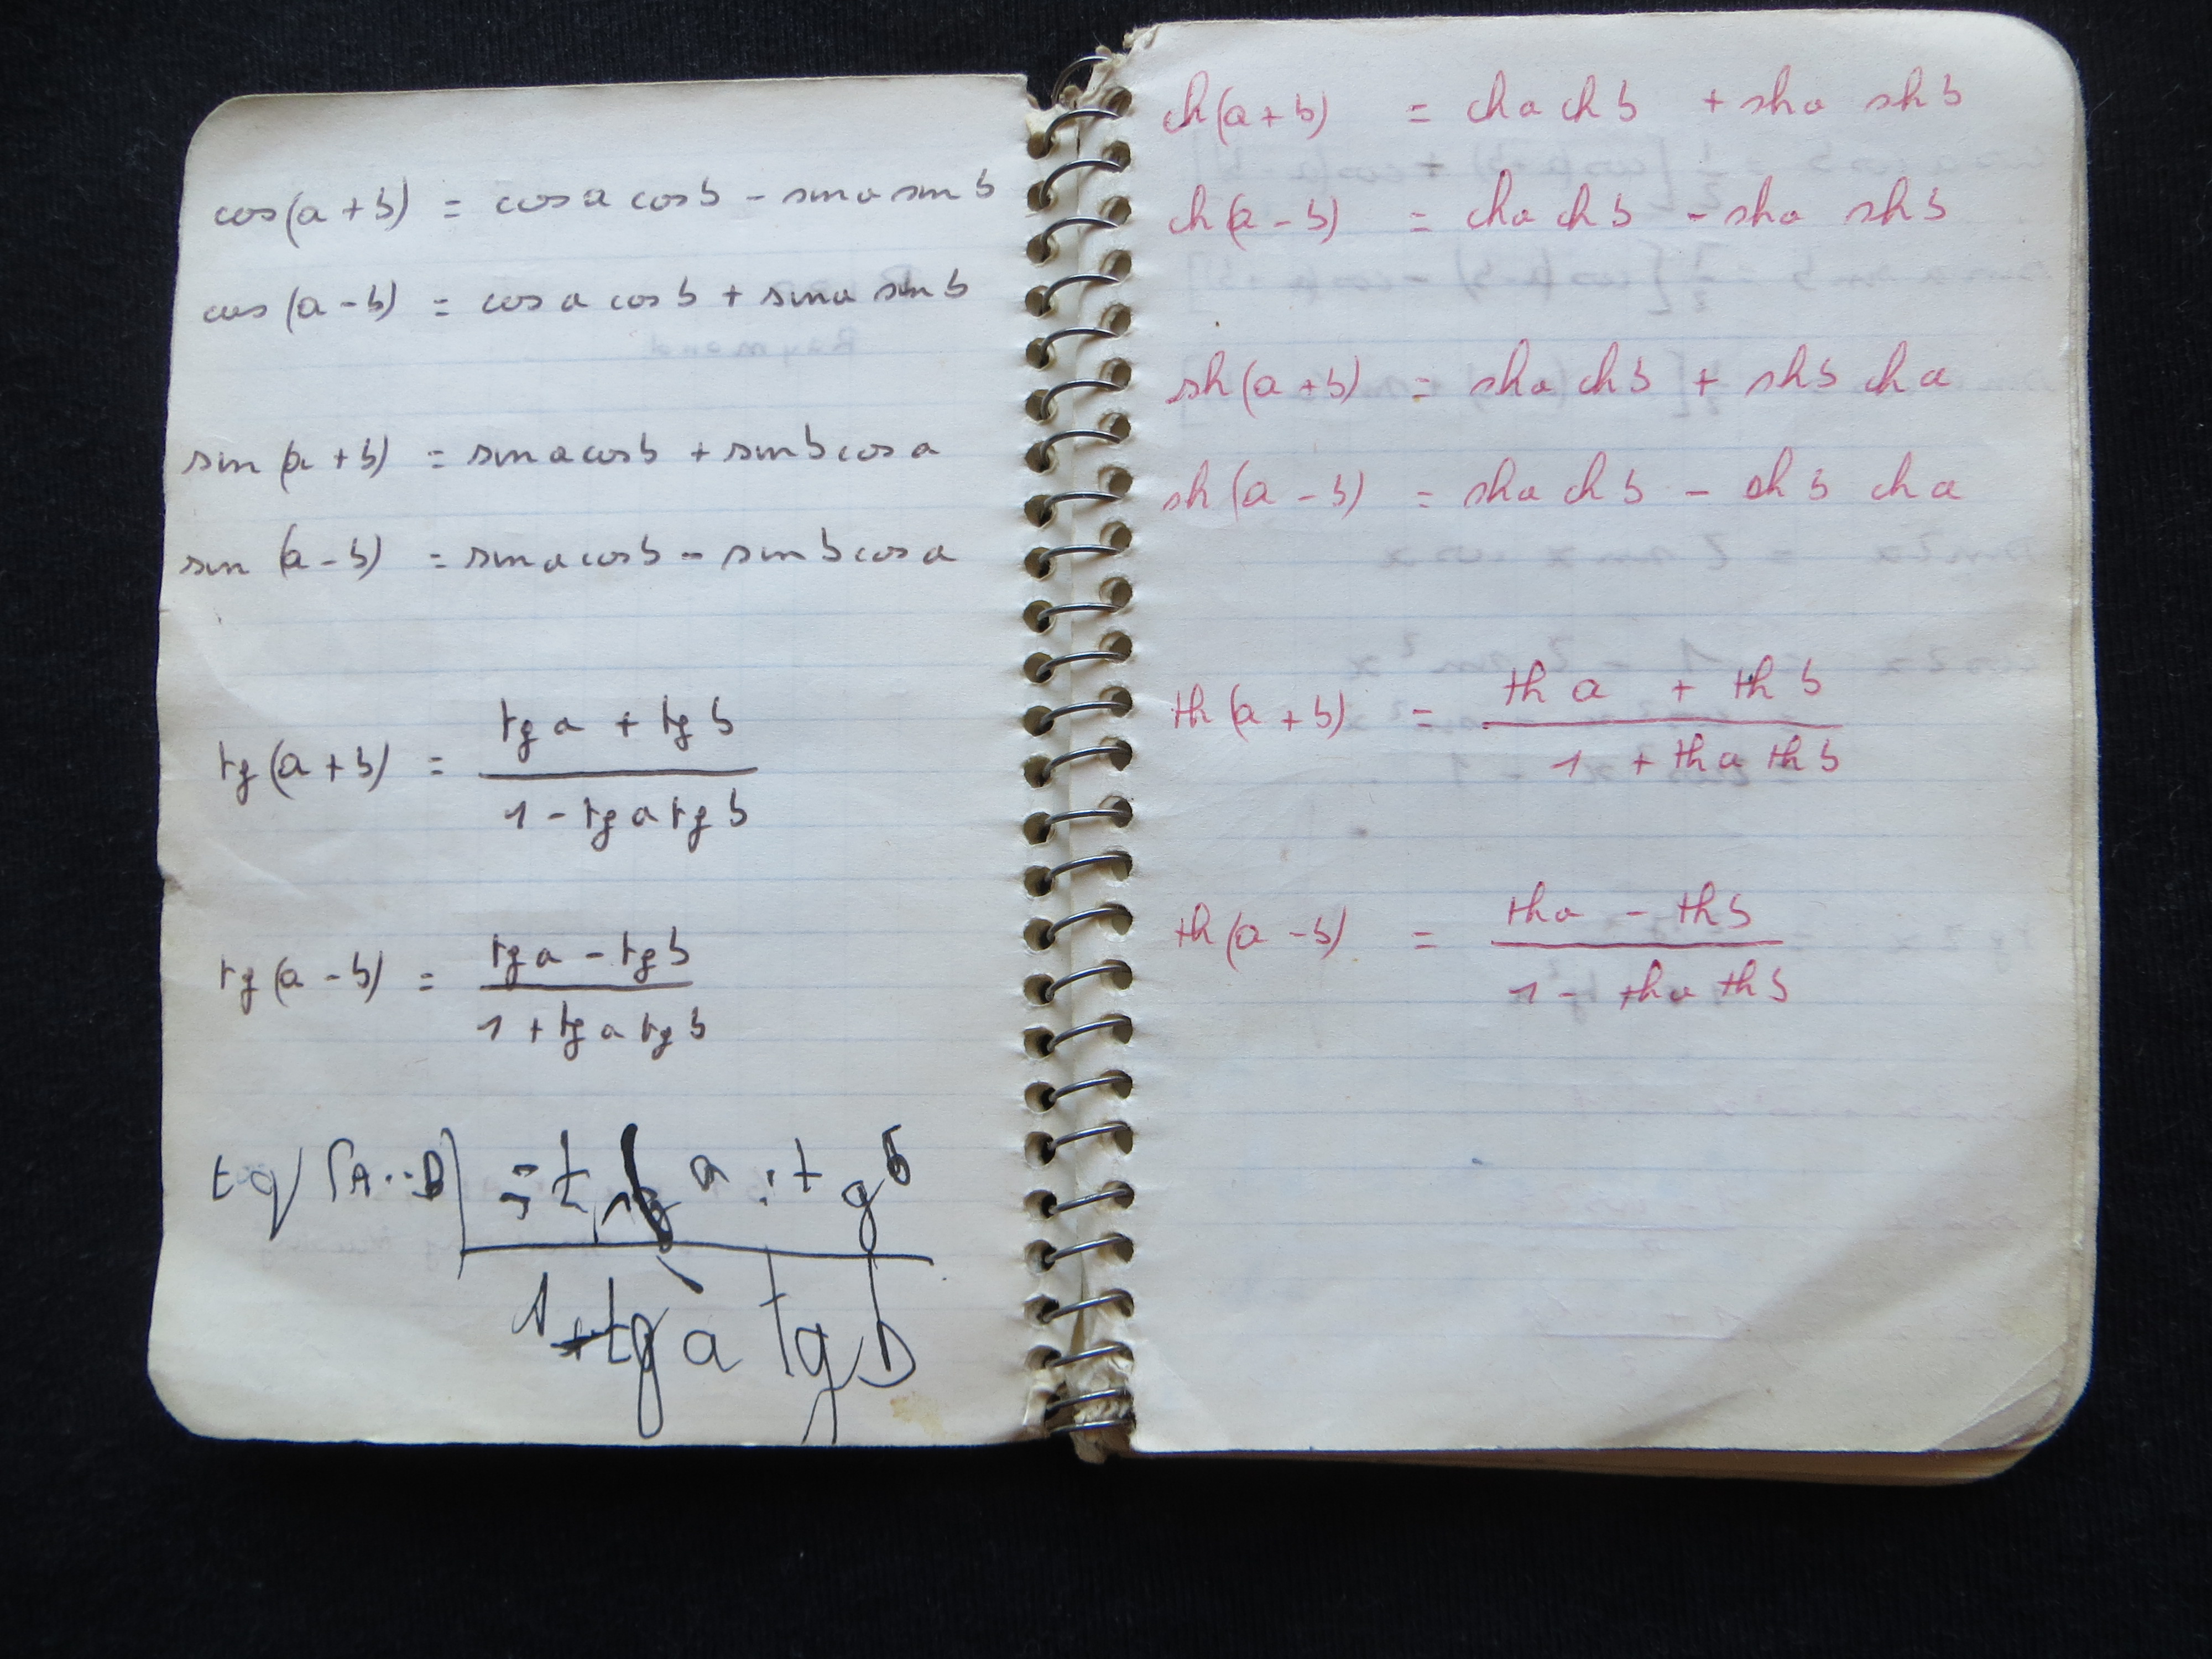 cos(a+b) = cos a cos b - sin a sin b
cos(a-b) = cos a cos b + sin a sin b
sin(a+b) = sin a cos b + sin b cos a
sin(a-b) = sin a cos b - sin b cos a
tg a + tg b
tg(a+b) =
1 - tg a tg b
tg a - tg b
tg(a-b) =
1 + tg a tg b
tg (A -- B) = t g a : t g b
1 + tg a tg b
ch(a+b) = ch a ch b + sh a sh b
ch(a-b) = ch a ch b - sh a sh b
sh(a+b) = sh a ch b + sh b ch a
sh(a-b) = sh a ch b - sh b ch a
th a + th b
th(a+b) =
1 + th a th b
th a - th b
th(a-b) =
1 - th a th b